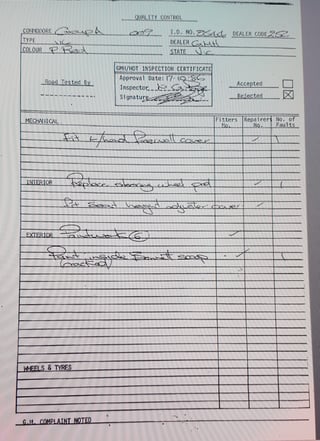 QUALITY CONTROL
COMMODORE Group A 009 I.D. NO. DEALER CODE 258
TYPE VK DEALER
COLOUR P Red STATE Vic
GMH/HDT INSPECTION CERTIFICATE
Road Tested By Approval Date: 17.10.86 Accepted
Inspector Rejected
Signature
MECHANICAL Fitters No. Repairers No. No. of Faults
Fit L/hand firewall cover
INTERIOR Replace steering wheel pad
Fit seat height adjuster cover
EXTERIOR Paintwork 6
Paint inside Bonnet scoop
(cracked)
WHEELS & TYRES
G.M. COMPLAINT NOTED